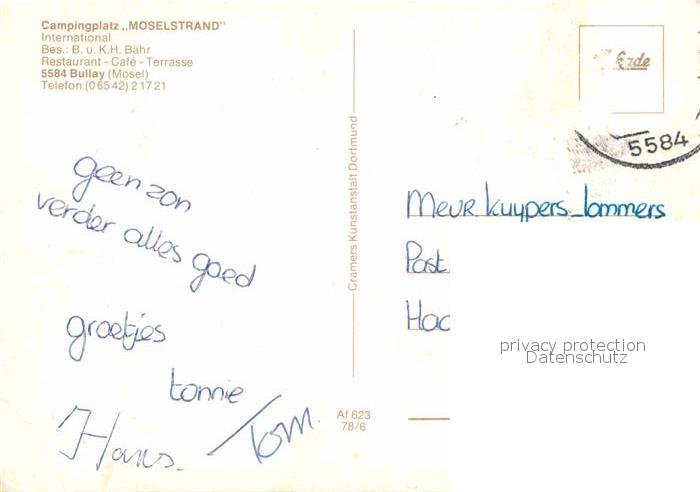 Campingplatz „MOSELSTRAND"
International
Bes.: B. u. K.H. Bähr
Restaurant - Café - Terrasse
5584 Bullay (Mosel)
Telefon (0 65 42) 2 17 21
geen zon
verder alles goed
groetjes
tonnie
Hans. / Tom.
Cramers Kunstanstalt Dortmund
Af 623
78/6
5584
Mevr kuypers_lommers
Post
privacy protection
Datenschutz